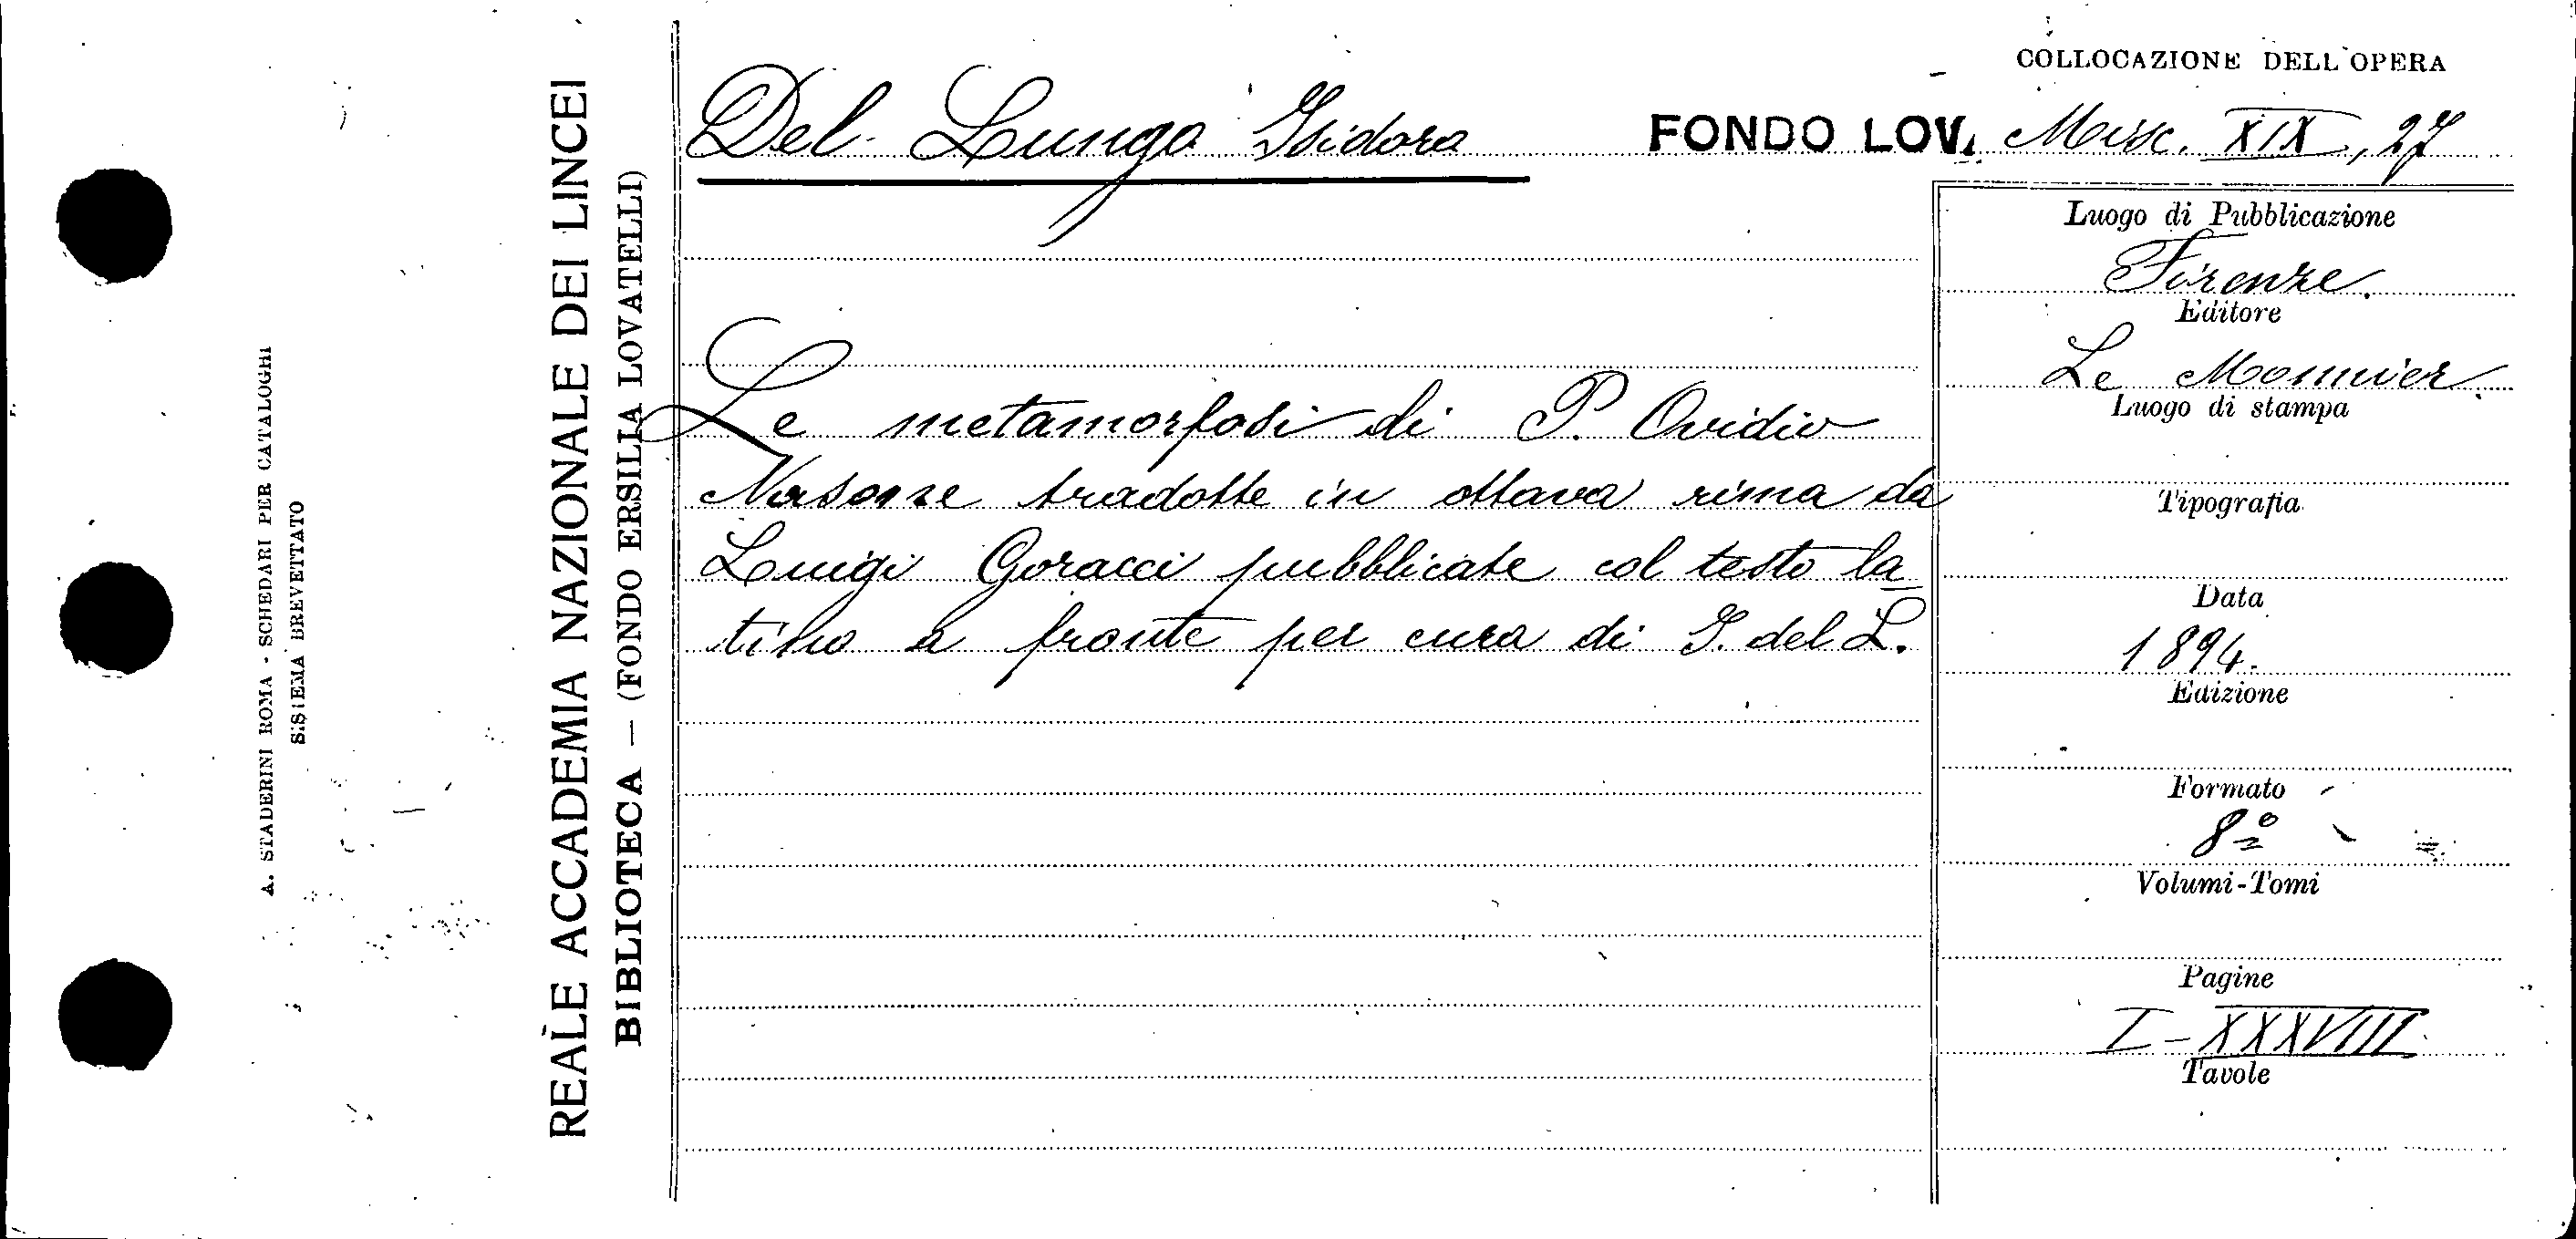 COLLOCAZIONE DELL'OPERA
Del Lungo Isidoro
FONDO LOV. Misc. XIX, 27
Le metamorfosi di P. Ovidio
Nasone tradotte in ottava rima da
Luigi Goracci pubblicate col testo la
tino a fronte per cura di I. del L.
Luogo di Pubblicazione
Firenze.
Editore
Le Monnier
Luogo di stampa
Tipografia
Data
1894.
Edizione
Formato
8º
Volumi-Tomi
Pagine
I-XXXVIII
Tavole
REALE ACCADEMIA NAZIONALE DEI LINCEI
BIBLIOTECA — (FONDO ERSILIA LOVATELLI)
A. STADERINI ROMA - SCHEDARI PER CATALOGHI
SISTEMA BREVETTATO